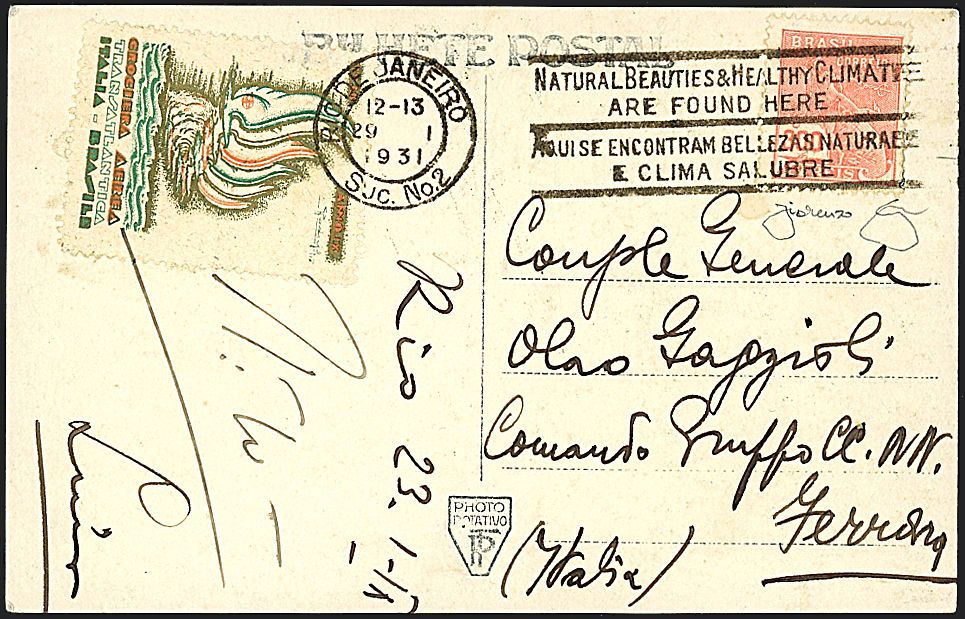 BILHETE POSTAL
CROCIERA AEREA
TRANSATLANTICA
ITALIA - BRASILE
RIO DE JANEIRO
12-13
29 1
1931
SUC. No. 2
BRASIL
CORREIO
NATURAL BEAUTIES & HEALTHY CLIMATE
ARE FOUND HERE
AQUI SE ENCONTRAM BELLEZAS NATURAES
E CLIMA SALUBRE
fiorenzo
Console Generale
Olao Gaggioli
Comando Gruppo CC. NN.
Ferrara
(Italia)
Rio 23.1-IX
PHOTO
ROTATIVO